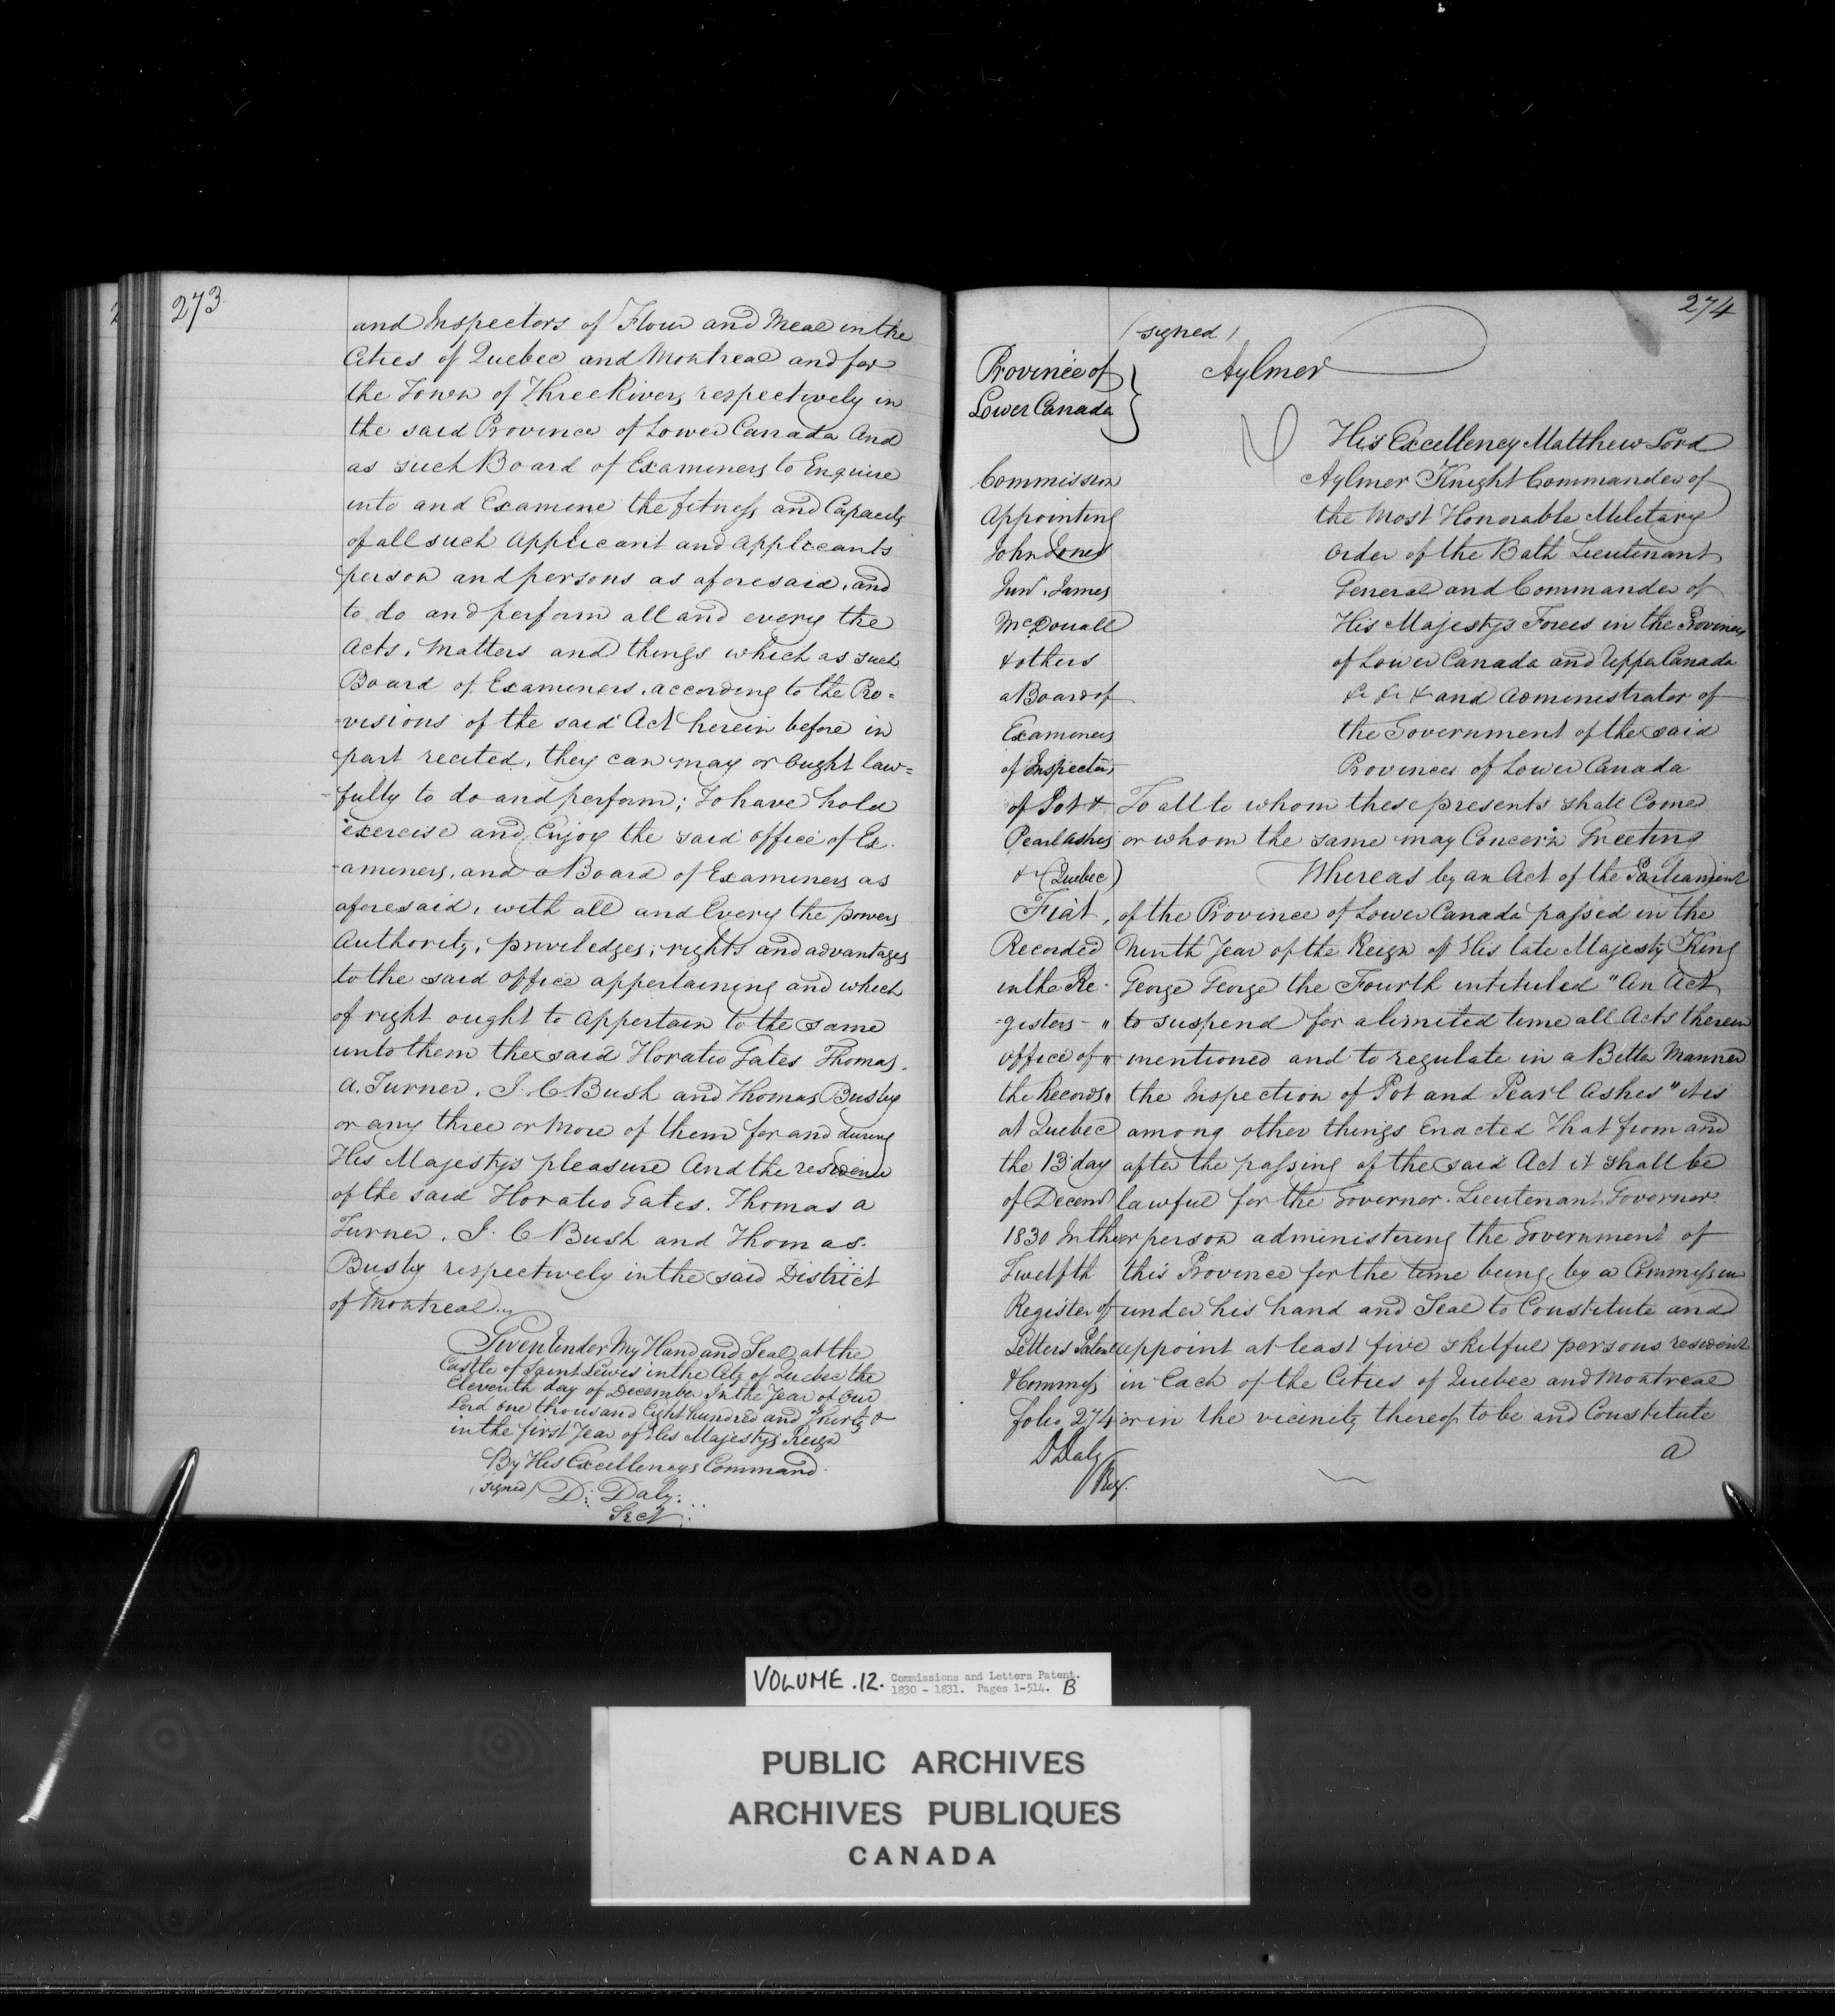 273
and Inspectors of Flour and Meal in the
Cities of Quebec and Montreal and for
the Town of Three Rivers respectively in
the said Province of Lower Canada And
as such Board of Examiners to Enquire
into and Examine the fitness and Capacity
of all such Applicant and applicants
person and persons as aforesaid, and
to do and perform all and every the
Acts, Matters and things which as such
Board of Examiners, according to the Pro=
-visions of the said Act herein before in
part recited, they can may or Ought law=
-fully to do and perform; To have hold
exercise and Enjoy the said office of Ex-
-aminers, and a Board of Examiners as
aforesaid, with all and Every the powers
Authority, priviledges, rights and advantages
to the said office appertaining and which
of right ought to appertain to the same
unto them the said Horatio Gates Thomas
A. Turner, J. C Bush and Thomas Busby
or any three or more of them for and during
His Majesty's pleasure And the residence
of the said Horatio Gates. Thomas A
Turner, J. C Bush and Thomas
Busby respectively in the said District
of Montreal
Given Under My Hand and Seal at the
Castle of Saint Lewis in the City of Quebec the
Eleventh day of December In the Year of Our
Lord one thousand Eight hundred and Thirty &
in the first Year of His Majesty's Reign
By His Excellency's Command
(signed) D: Daly:
Secy
274
(signed)
Aylmer
Province of
Lower Canada
His Excellency Matthew Lord
Aylmer Knight Commander of
the Most Honorable Military
Order of the Bath Lieutenant
General and Commander of
His Majesty's Forces in the Provinces
of Lower Canada and Upper Canada
&c &c & and administrator of
the Government of the said
Province of Lower Canada
Commission
Appointing
John Jones
Junr. James
McDouall
& others
a Board of
Examiners
of Inspectors
of Pot &
Pearl ashes
& (Quebec)
Fiat,
Recorded
in the Re-
-gisters-
office of
the Records
at Quebec
the 13 day
of Decem
1830 In the
Twelfth
Register of
Letters Patent
& Commiss
folio 274
D Daly
Reg.
To all to whom these presents shall Come
or whom the same may Concern Greeting
Whereas by an Act of the Parliament
of the Province of Lower Canada passed in the
Ninth Year of the Reign of His late Majesty King
George George the Fourth intituled "An Act
" to suspend for a limited time all Acts therein
" mentioned and to regulate in a Better Manner
" the Inspection of Pot and Pearl Ashes" it is
among other things Enacted That from and
after the passing of the said Act it shall be
lawful for the Governor. Lieutenant Governor
or person administering the Government of
this Province for the time being by a Commission
under his hand and Seal to Constitute and
appoint at least five skilful persons resident
in Each of the Cities of Quebec and Montreal
or in the vicinity thereof to be and Constitute
a
VOLUME .12. Commissions and Letters Patent.
1830 - 1831. Pages 1-514. B
PUBLIC ARCHIVES
ARCHIVES PUBLIQUES
CANADA